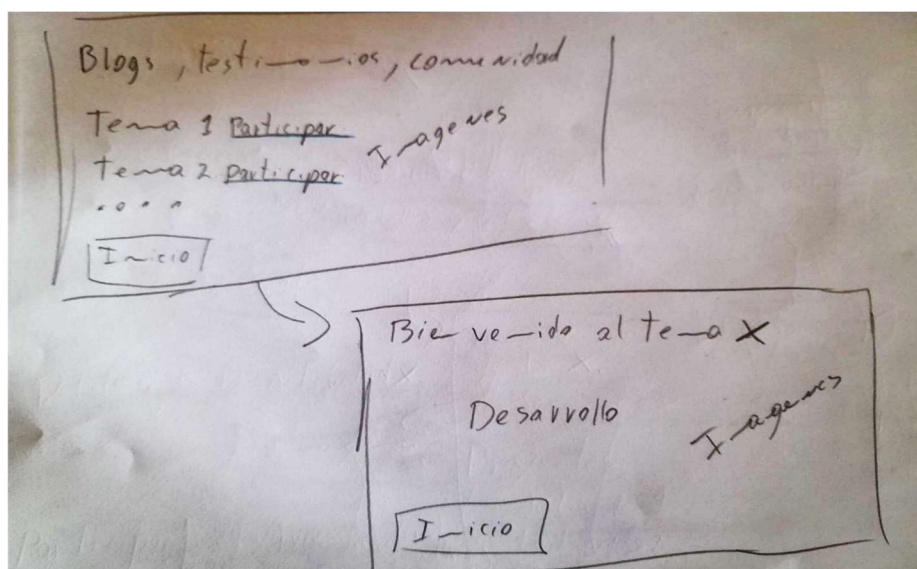 Blogs, testimonios, comunidad
Tema 1 Participar
Imagenes
Tema 2 Participar
....
Inicio
Bienvenido al tema X
Desarrollo
Imagenes
Inicio